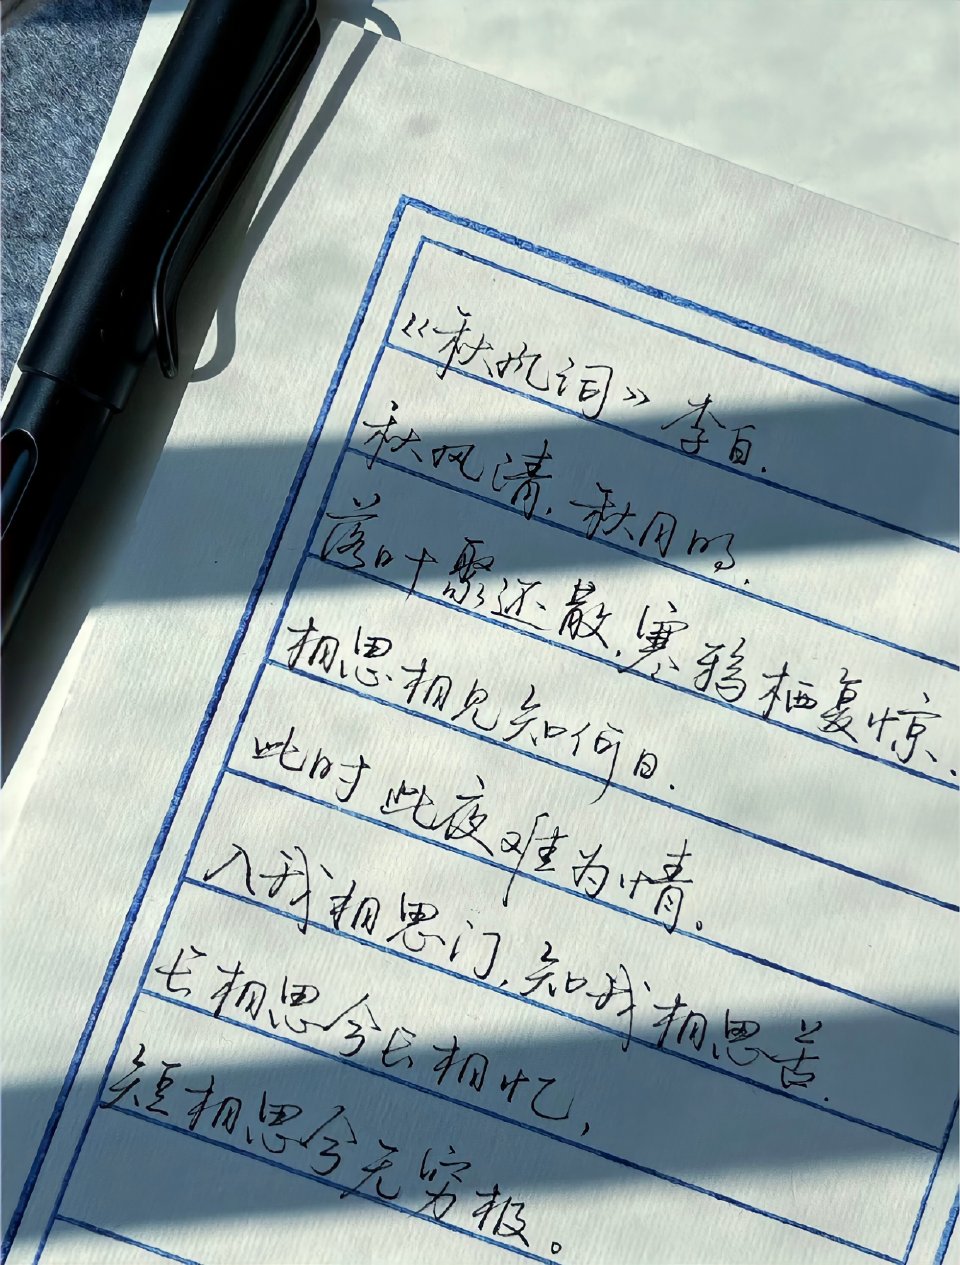 《秋风词》李白.
秋风清,秋月明.
落叶聚还散,寒鸦栖复惊.
相思相见知何日.
此时此夜难为情。
入我相思门,知我相思苦.
长相思兮长相忆,
短相思兮无穷极。